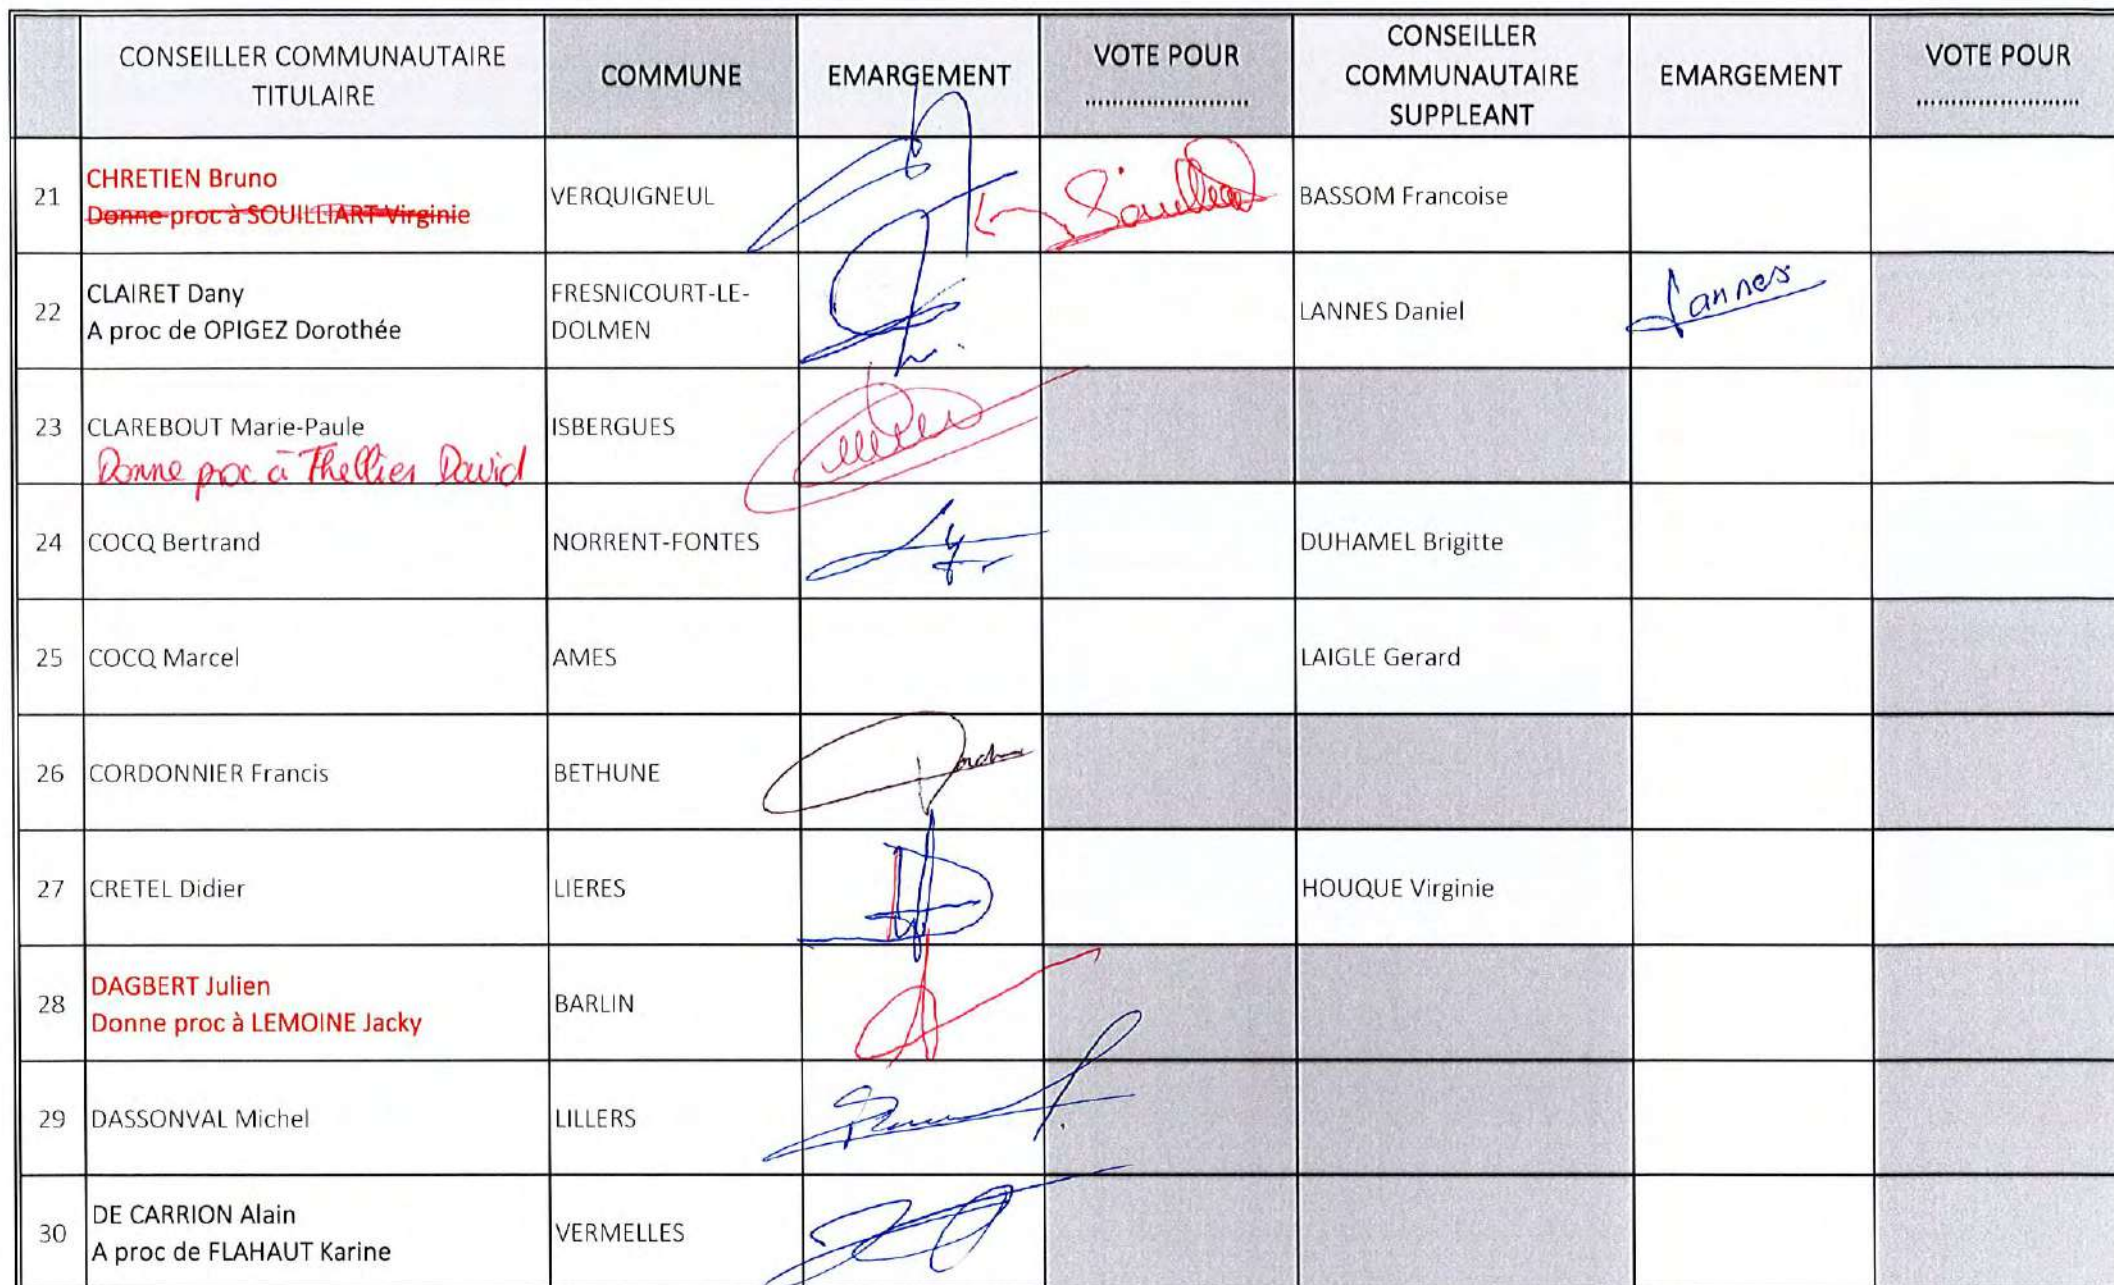 CONSEILLER COMMUNAUTAIRE
TITULAIRE
COMMUNE
EMARGEMENT
VOTE POUR
........................
CONSEILLER
COMMUNAUTAIRE
SUPPLEANT
EMARGEMENT
VOTE POUR
........................
21
CHRETIEN Bruno
Donne proc à SOUILLIART Virginie
VERQUIGNEUL
BASSOM Francoise
22
CLAIRET Dany
A proc de OPIGEZ Dorothée
FRESNICOURT-LE-
DOLMEN
LANNES Daniel
Lannes
23
CLAREBOUT Marie-Paule
Donne proc à Thellier David
ISBERGUES
24
COCQ Bertrand
NORRENT-FONTES
DUHAMEL Brigitte
25
COCQ Marcel
AMES
LAIGLE Gerard
26
CORDONNIER Francis
BETHUNE
27
CRETEL Didier
LIERES
HOUQUE Virginie
28
DAGBERT Julien
Donne proc à LEMOINE Jacky
BARLIN
29
DASSONVAL Michel
LILLERS
30
DE CARRION Alain
A proc de FLAHAUT Karine
VERMELLES